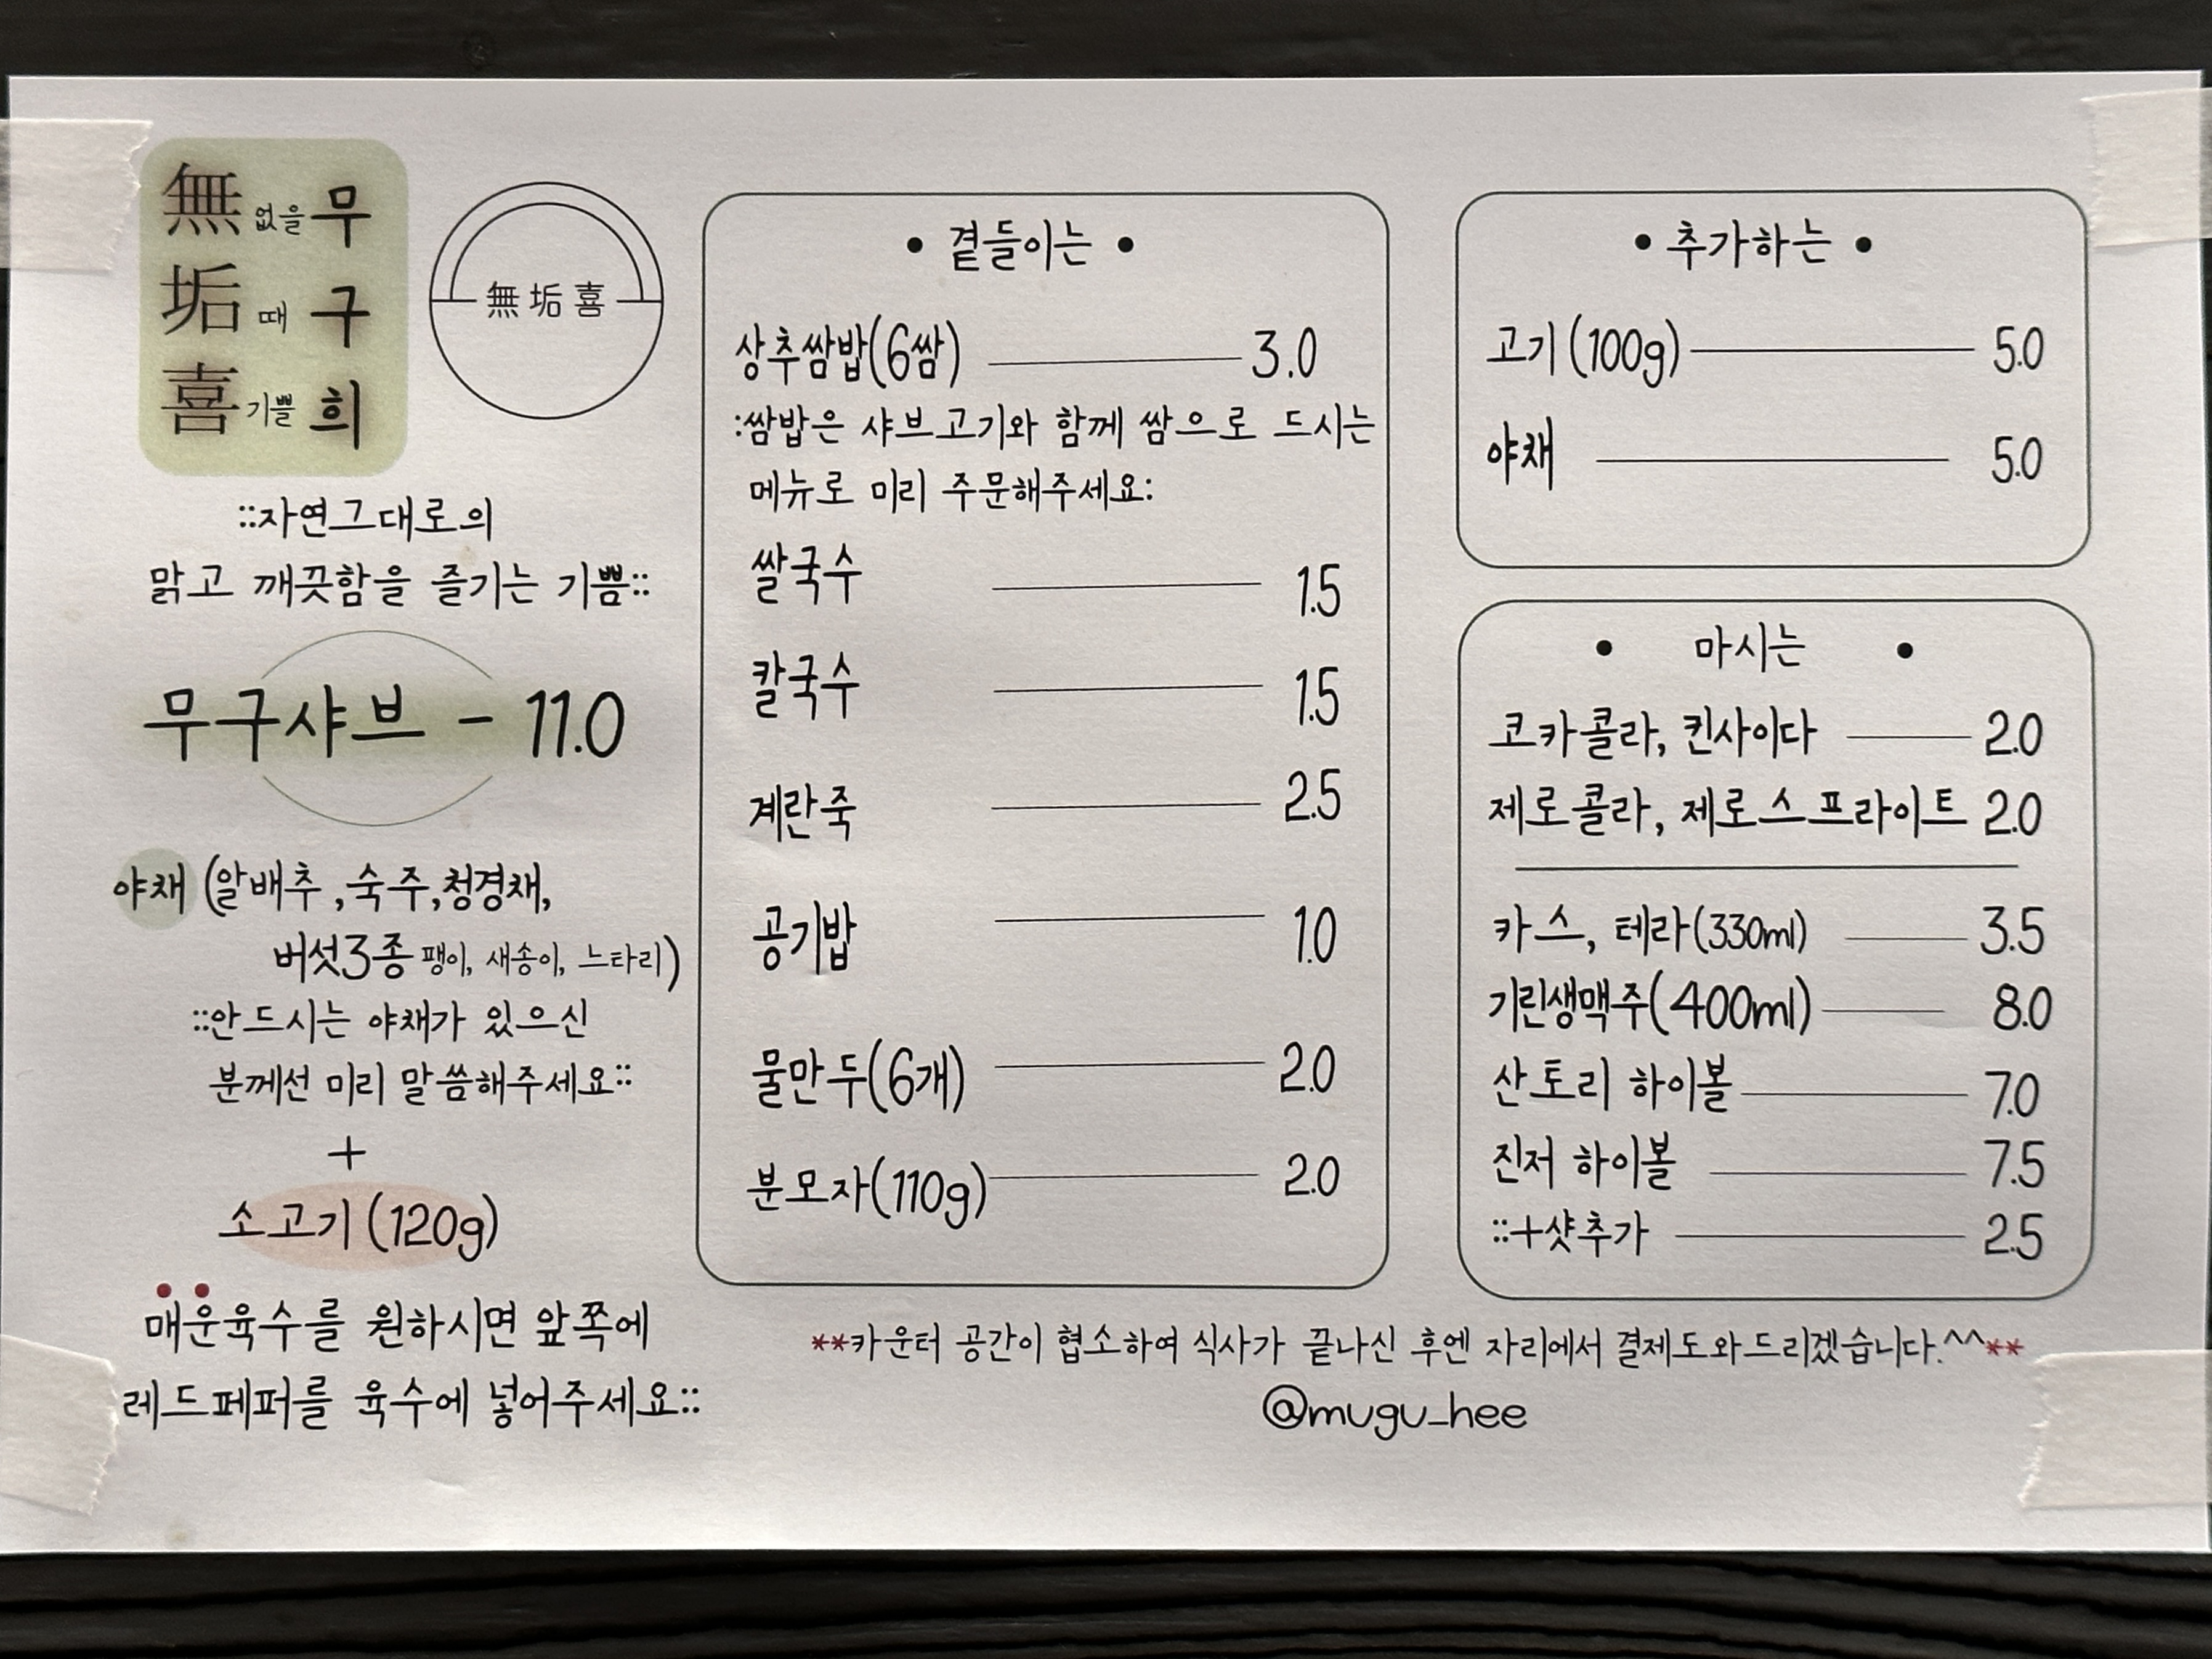 無 없을 무
垢 때 구
喜 기쁠 희
無垢喜
::자연그대로의
맑고 깨끗함을 즐기는 기쁨::
무구샤브 - 11.0
야채 (알배추, 숙주, 청경채,
버섯3종 팽이, 새송이, 느타리)
::안드시는 야채가 있으신
분께선 미리 말씀해주세요::
+
소고기 (120g)
매운육수를 원하시면 앞쪽에
레드페퍼를 육수에 넣어주세요::
• 곁들이는 •
상추쌈밥(6쌈) 3.0
:쌈밥은 샤브고기와 함께 쌈으로 드시는
메뉴로 미리 주문해주세요:
쌀국수 1.5
칼국수 1.5
계란죽 2.5
공기밥 1.0
물만두(6개) 2.0
분모자(110g) 2.0
• 추가하는 •
고기 (100g) 5.0
야채 5.0
• 마시는 •
코카콜라, 킨사이다 2.0
제로콜라, 제로스프라이트 2.0
카스, 테라(330ml) 3.5
기린생맥주(400ml) 8.0
산토리 하이볼 7.0
진저 하이볼 7.5
::+샷추가 2.5
**카운터 공간이 협소하여 식사가 끝나신 후엔 자리에서 결제도와드리겠습니다.^^**
@mugu_hee